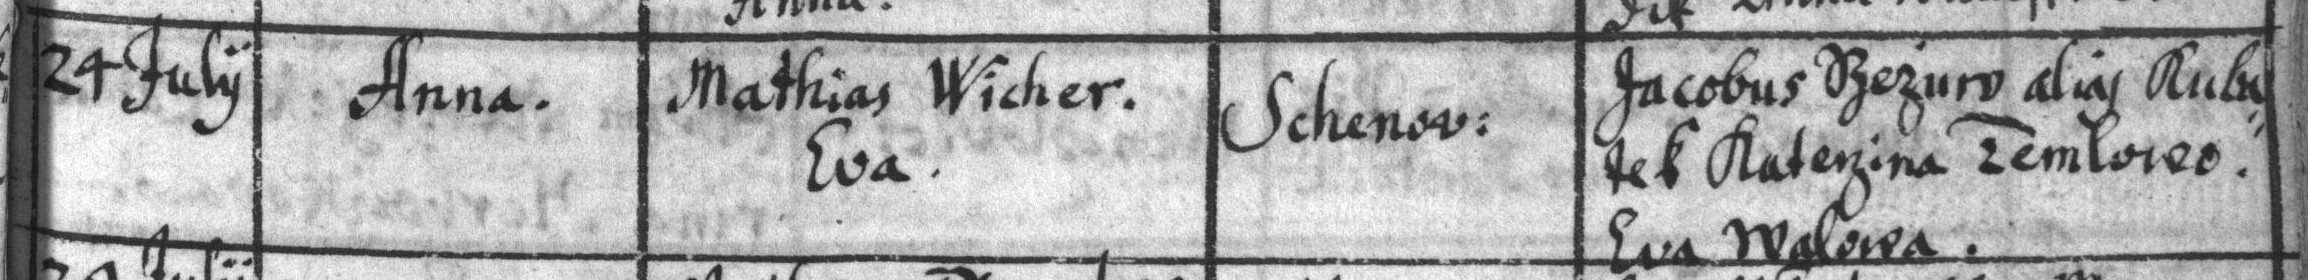 24 Julij
Anna.
Mathias Wicher.
Eva.
Schenov:
Jacobus Bezuro alias Kuba„
tek Katerzina Zemlowa.
Eva Walowa.